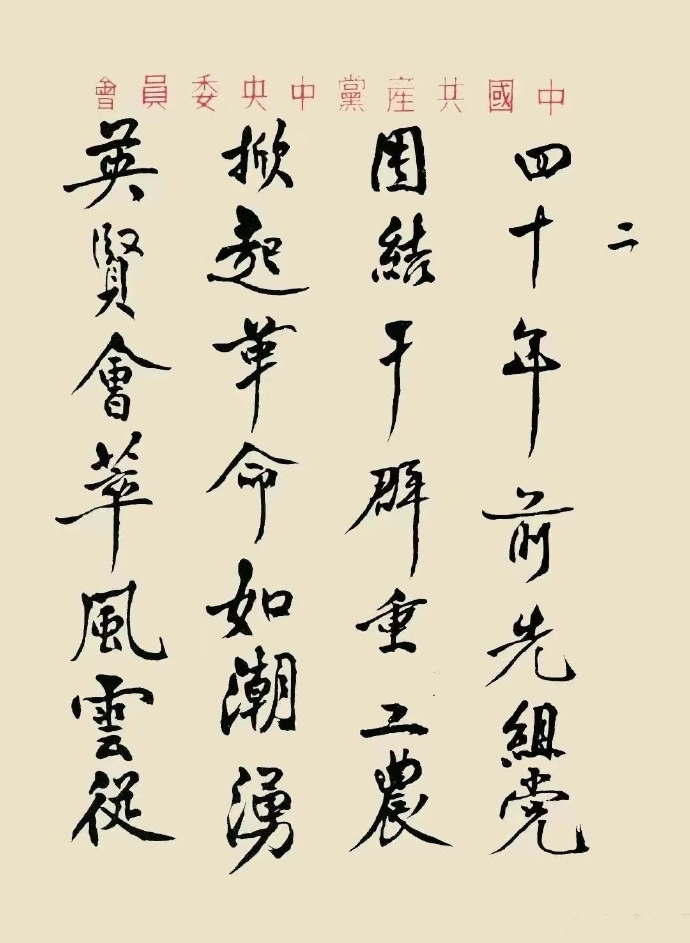 中國共産黨中央委員會
二
四十年前先組党
團結干群重工農
掀起革命如潮湧
英賢會萃風雲從